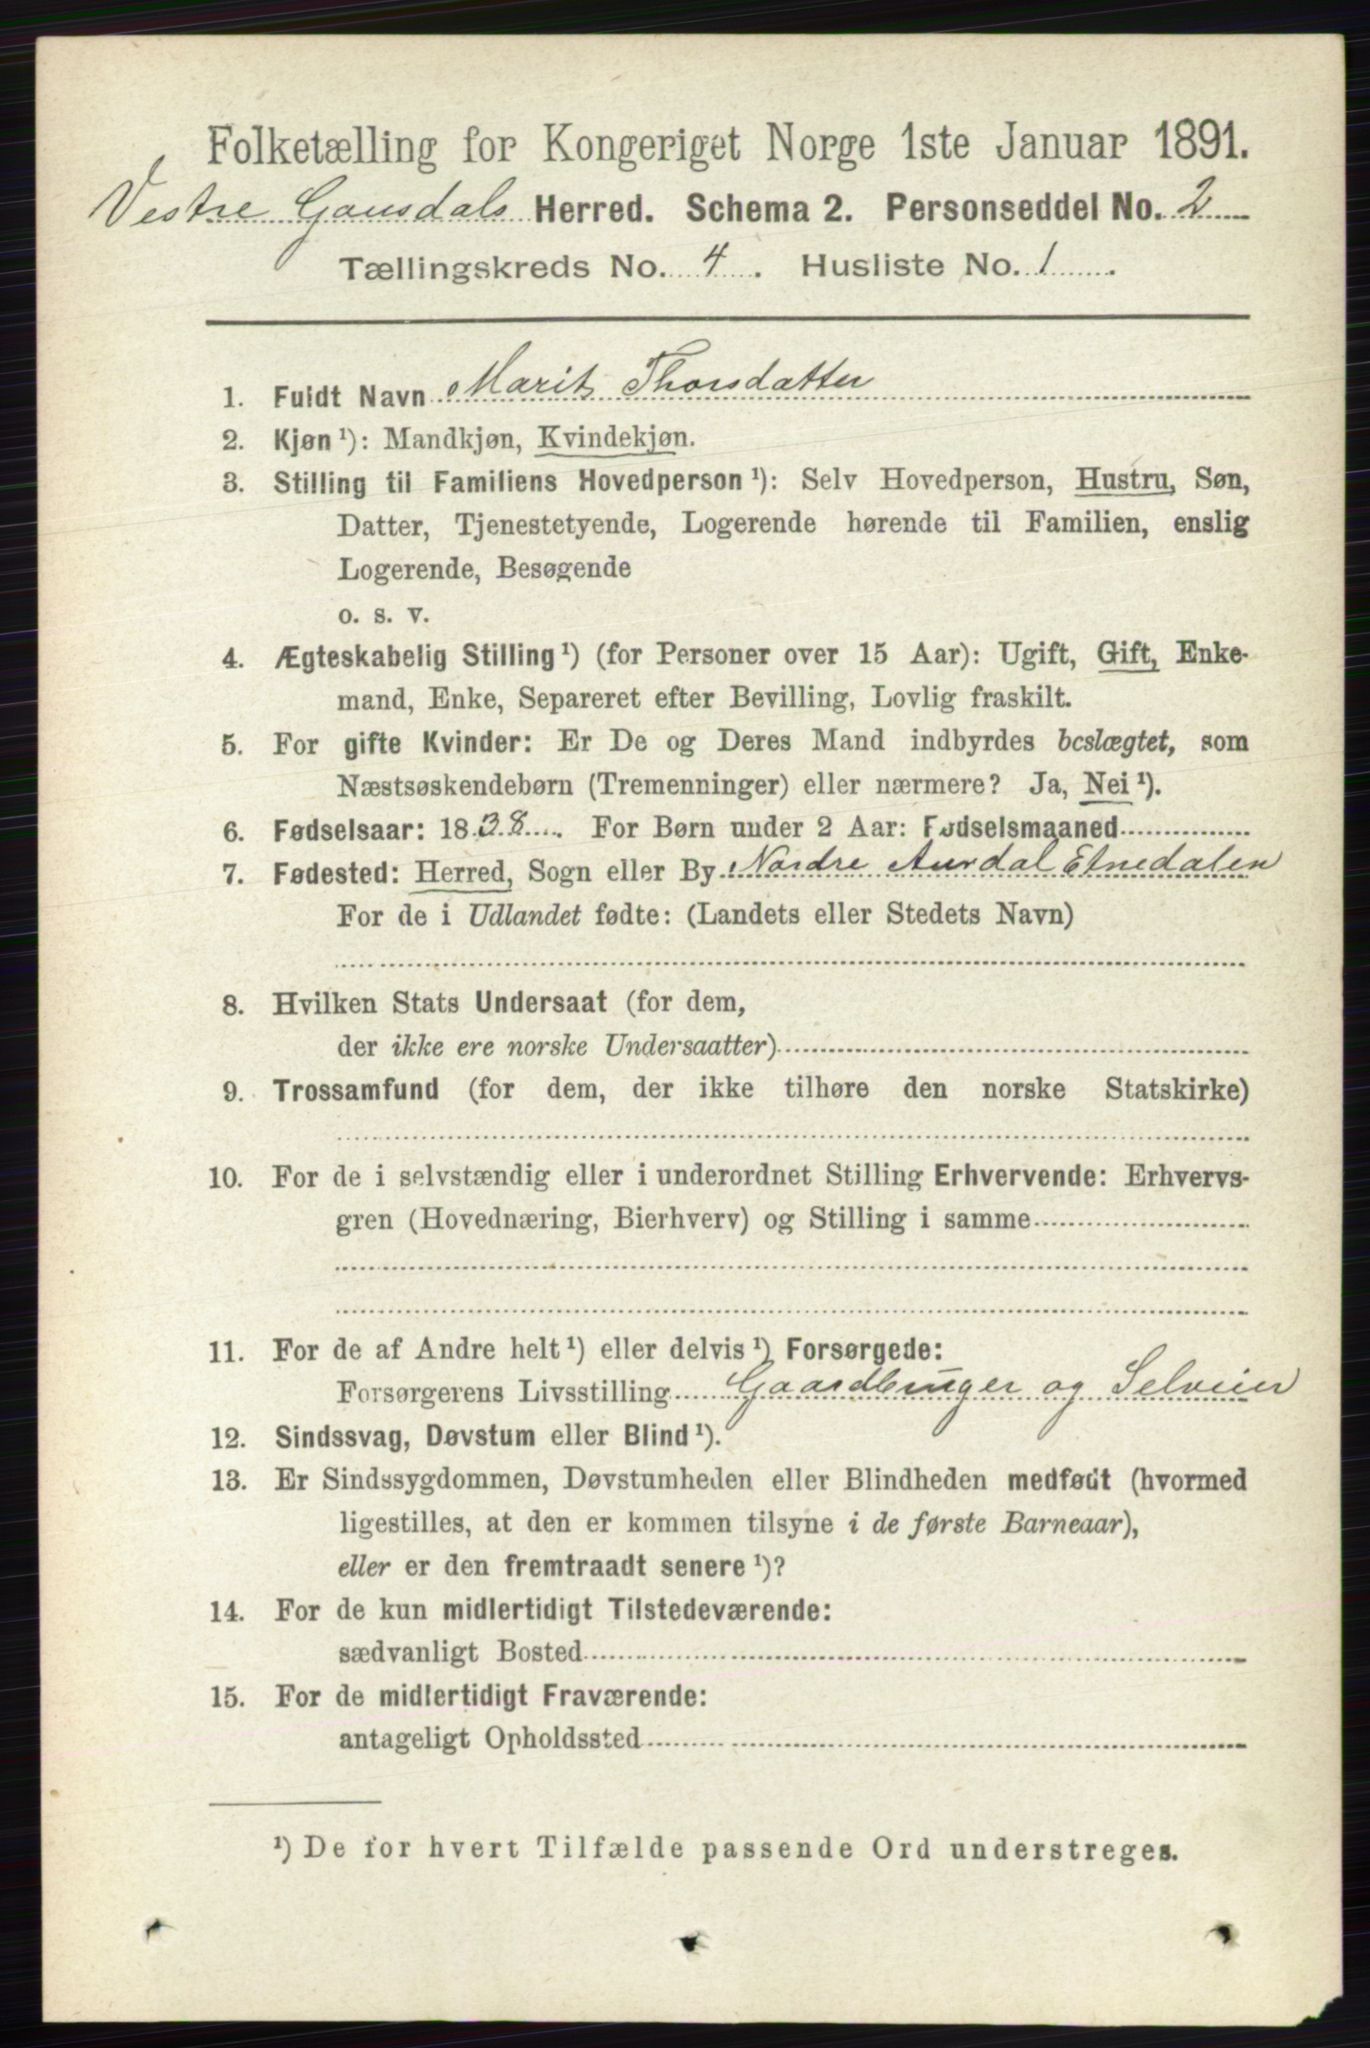 Folketælling for Kongeriget Norge 1ste Januar 1891.
Vestre Gausdals Herred. Schema 2. Personseddel No. 2
Tællingskreds No. 4. Husliste No. 1.
1. Fuldt Navn Marit Thorsdatter
2. Kjøn ¹): Mandkjøn, Kvindekjøn.
3. Stilling til Familiens Hovedperson ¹): Selv Hovedperson, Hustru, Søn,
Datter, Tjenestetyende, Logerende hørende til Familien, enslig
Logerende, Besøgende
o. s. v.
4. Ægteskabelig Stilling ¹) (for Personer over 15 Aar): Ugift, Gift, Enke-
mand, Enke, Separeret efter Bevilling, Lovlig fraskilt.
5. For gifte Kvinder: Er De og Deres Mand indbyrdes beslægtet, som
Næstsøskendebørn (Tremenninger) eller nærmere? Ja, Nei ¹).
6. Fødselsaar: 1838. For Børn under 2 Aar: Fødselsmaaned
7. Fødested: Herred, Sogn eller By Nordre Aurdal Etnedalen
For de i Udlandet fødte: (Landets eller Stedets Navn)
8. Hvilken Stats Undersaat (for dem,
der ikke ere norske Undersaatter)
9. Trossamfund (for dem, der ikke tilhøre den norske Statskirke)
10. For de i selvstændig eller i underordnet Stilling Erhvervende: Erhvervs-
gren (Hovednæring, Bierhverv) og Stilling i samme
11. For de af Andre helt ¹) eller delvis ¹) Forsørgede:
Forsørgerens Livsstilling Gaardbruger og Selveier
12. Sindssvag, Døvstum eller Blind ¹).
13. Er Sindssygdommen, Døvstumheden eller Blindheden medfødt (hvormed
ligestilles, at den er kommen tilsyne i de første Barneaar),
eller er den fremtraadt senere ¹)?
14. For de kun midlertidigt Tilstedeværende:
sædvanligt Bosted
15. For de midlertidigt Fraværende:
antageligt Opholdssted
¹) De for hvert Tilfælde passende Ord understreges.